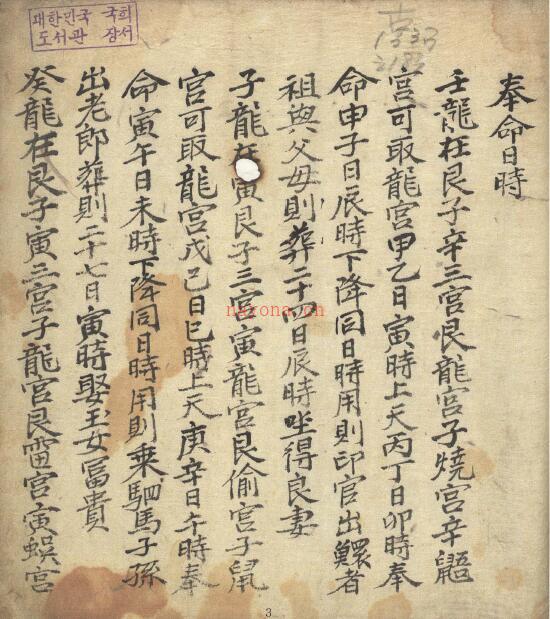 대한민국 국회
도서관 장서
奉命日時
壬龍在艮子辛三宮艮龍宮子燒宮辛
宮可取龍宮甲乙日寅時上天丙丁日卯時奉
命申子日辰時下降同日時用則印官出鰥者
祖與父母則葬二十四日辰時坐得良妻
子龍在寅艮子三宮寅龍宮艮偷宮子鼠
宮可取龍宮戊己日巳時上天庚辛日午時奉
命寅午日未時下降同日時用則乘駟馬子孫
出老郎葬則二十七日寅時娶玉女富貴
癸龍在艮子寅三宮子龍宮艮雷宮寅蜈宮
narona.cn
3